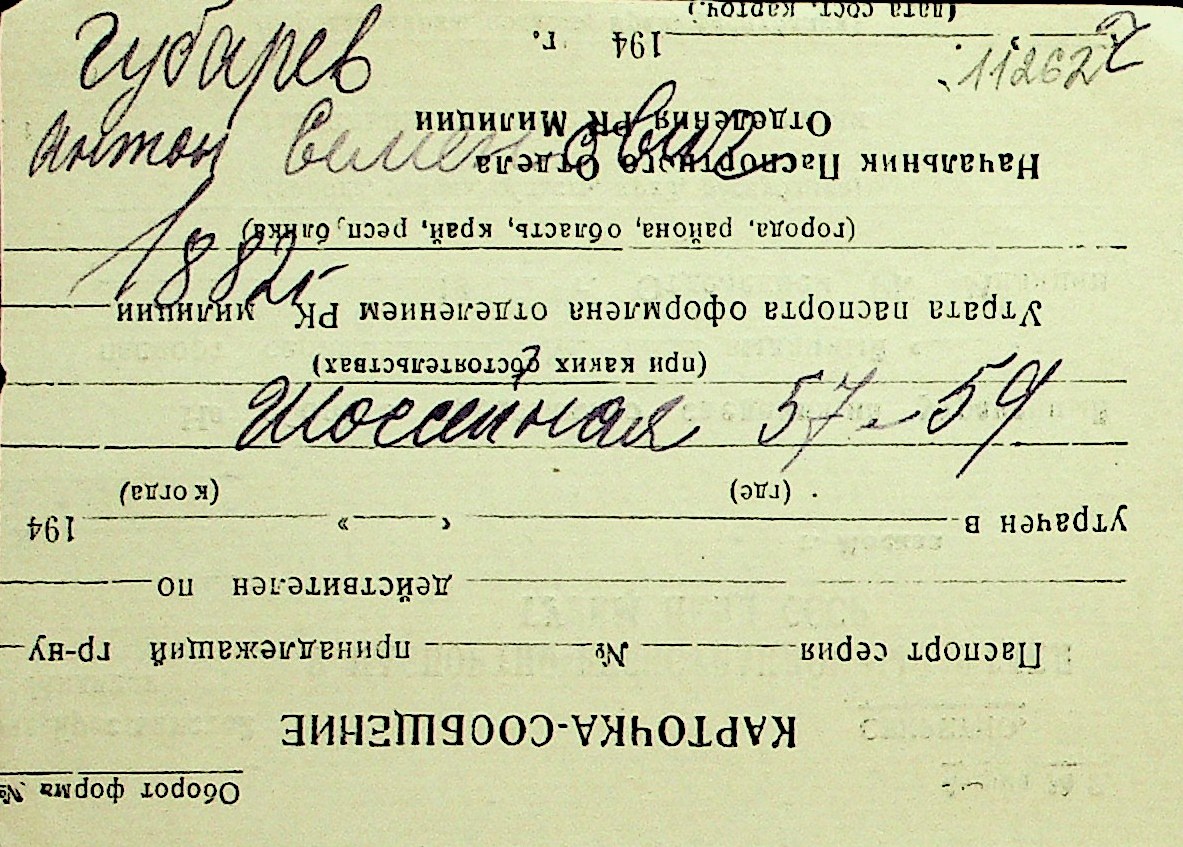 Губарев
112622
Антон Семенович
1882 г
Шоссейная 57-59
Оборот форма №
КАРТОЧКА-СООБЩЕНИЕ
Паспорт серия № принадлежащий гр-ну
действителен по
утрачен в « » 194
(где) (когда)
(при каких обстоятельствах)
Утрата паспорта оформлена отделением РК милиции
(города, района, область, край, республика)
Начальник Паспортного Отдела
Отделения РК Милиции
194 г.
(дата сост. карточ.)